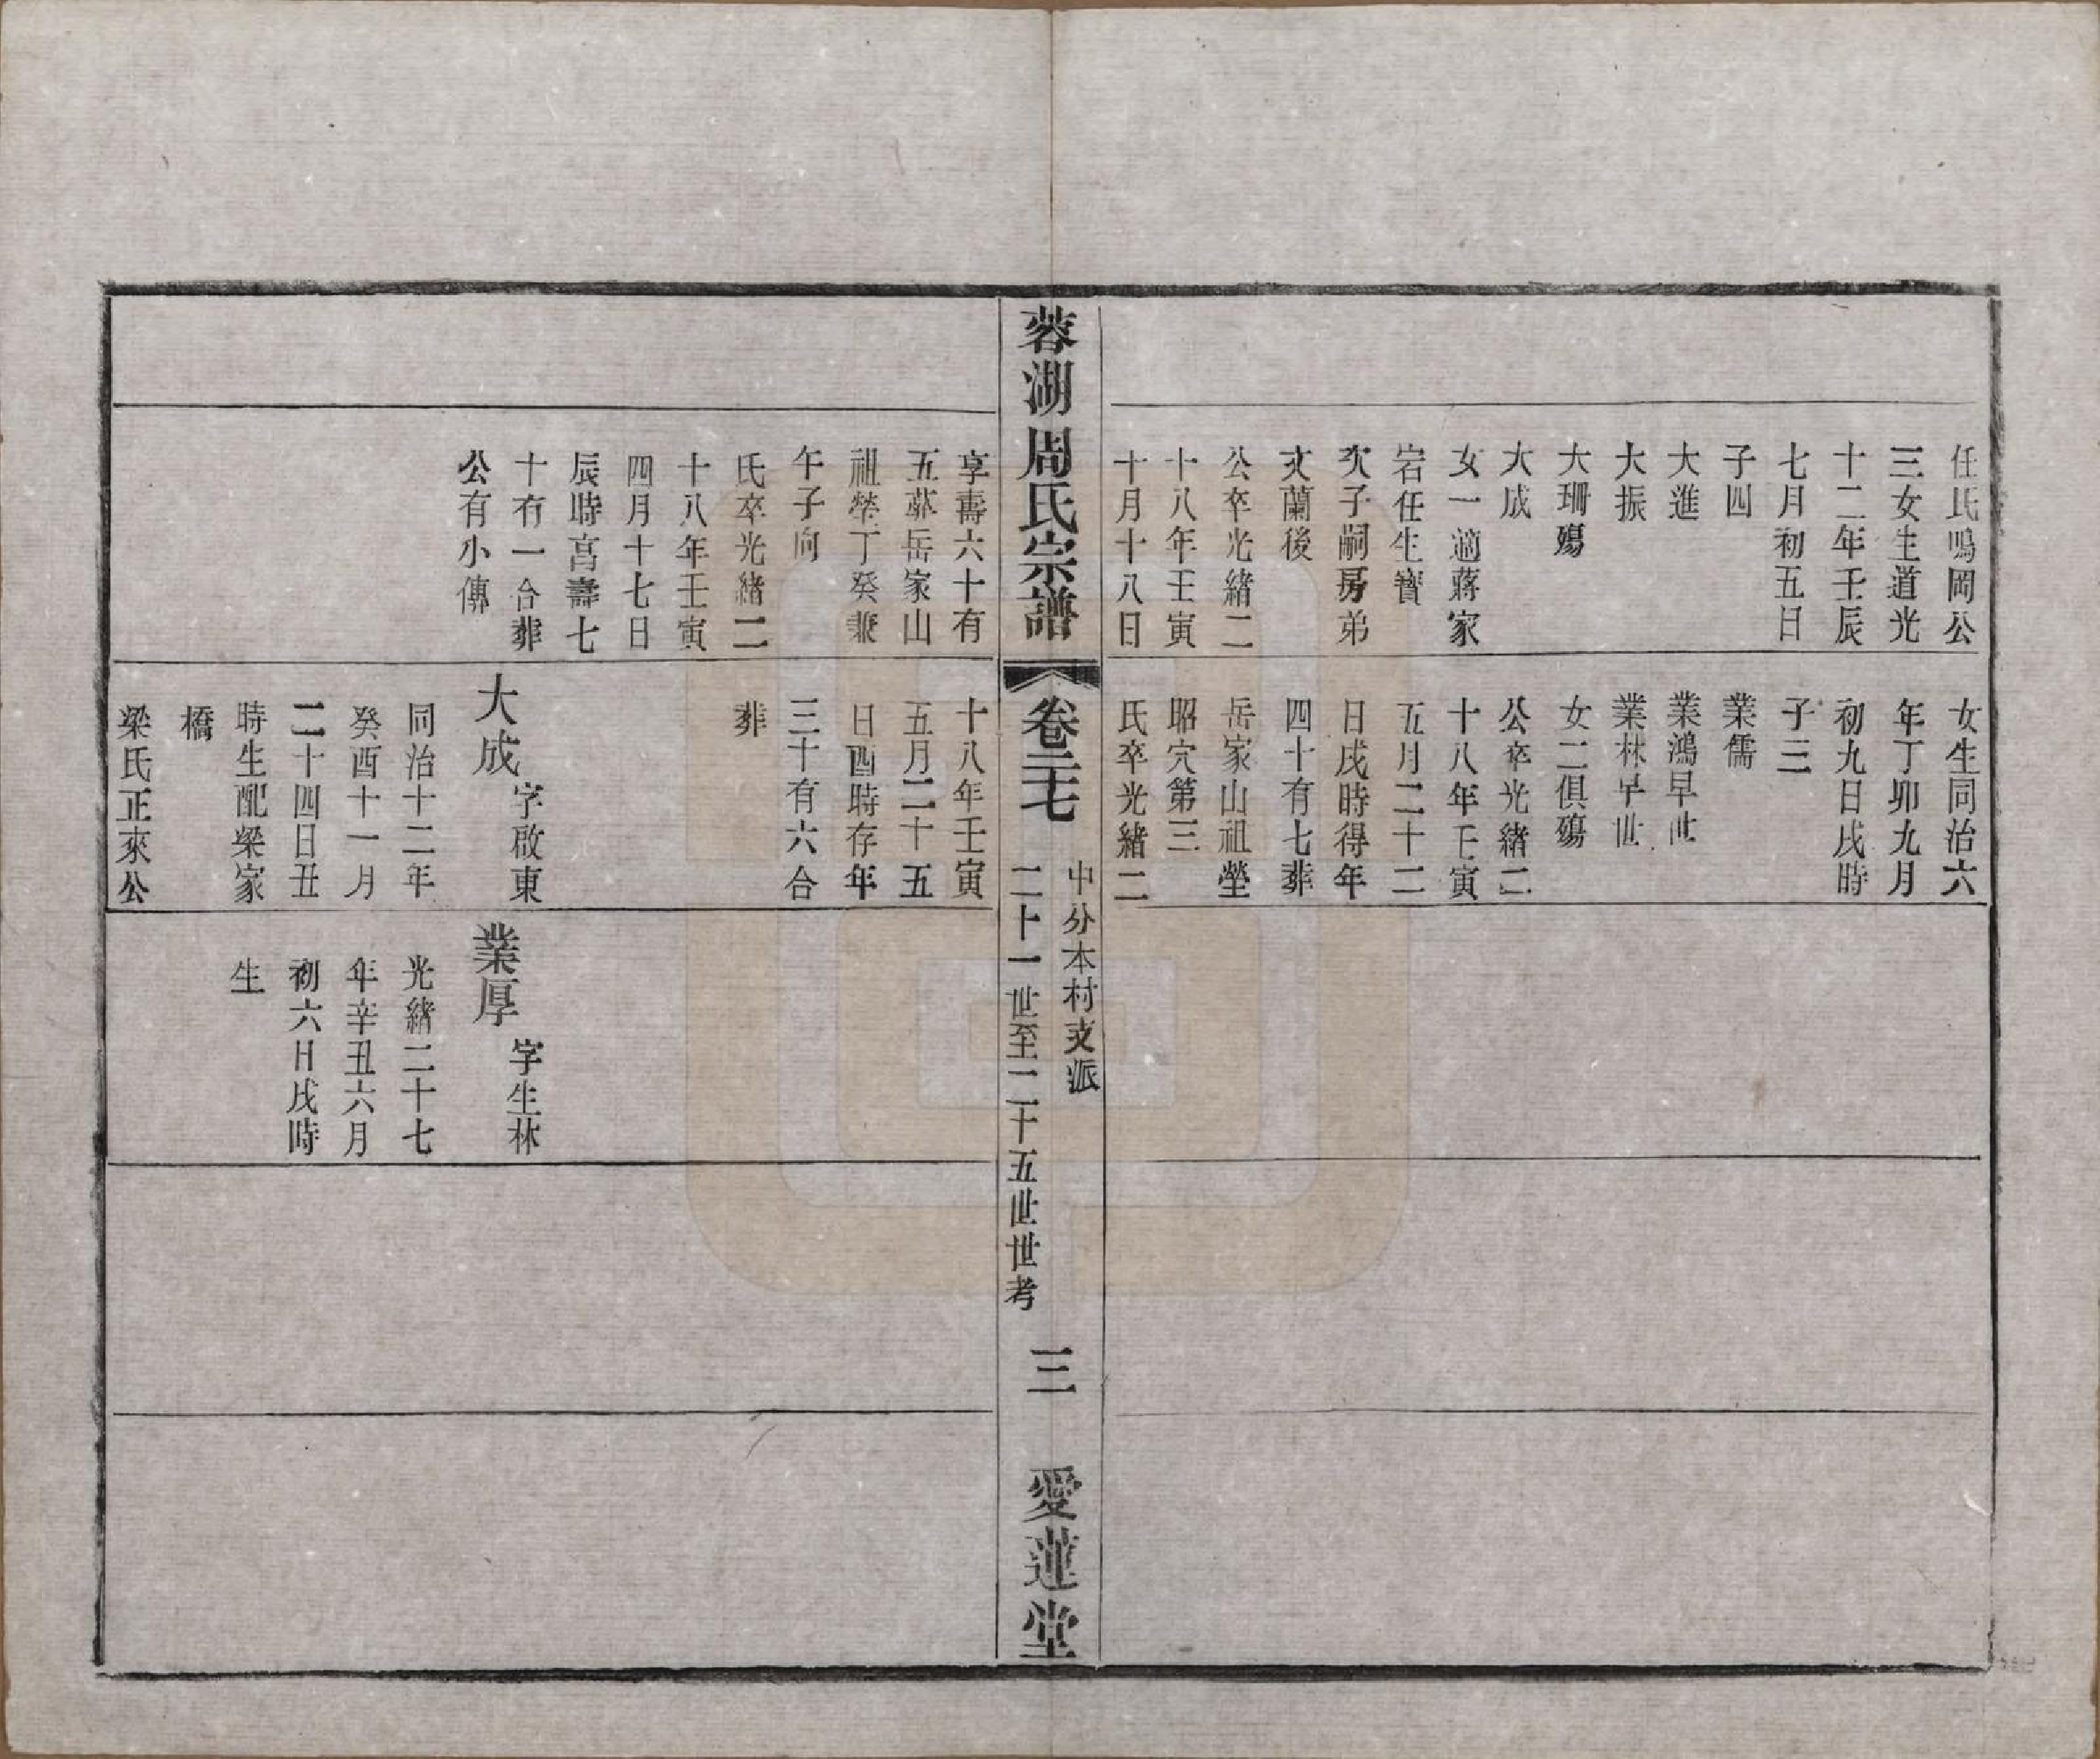 任氏鳴岡公
三女生道光
十二年壬辰
七月初五日
子四
大進
大振
大珊殤
大成
女一適蔣家
宕任生寳
次子嗣房弟
文蘭後
公卒光緒二
十八年壬寅
十月十八日
女生同治六
年丁卯九月
初九日戌時
子三
業儒
業鴻早世
業林早世
女二俱殤
公卒光緒二
十八年壬寅
五月二十二
日戌時得年
四十有七葬
岳家山祖塋
昭穴第三
氏卒光緒二
蓉湖周氏宗譜
卷二十七
中分本村支派
二十一世至二十五世世考
三
愛蓮堂
享壽六十有
五葬岳家山
祖塋丁癸兼
午子向
氏卒光緒二
十八年壬寅
四月十七日
辰時亯壽七
十有一合葬
公有小傳
十八年壬寅
五月二十五
日酉時存年
三十有六合
葬
大成 字啟東
同治十二年
癸酉十一月
二十四日丑
時生配梁家
橋
梁氏正來公
業厚 字生林
光緒二十七
年辛丑六月
初六日戌時
生